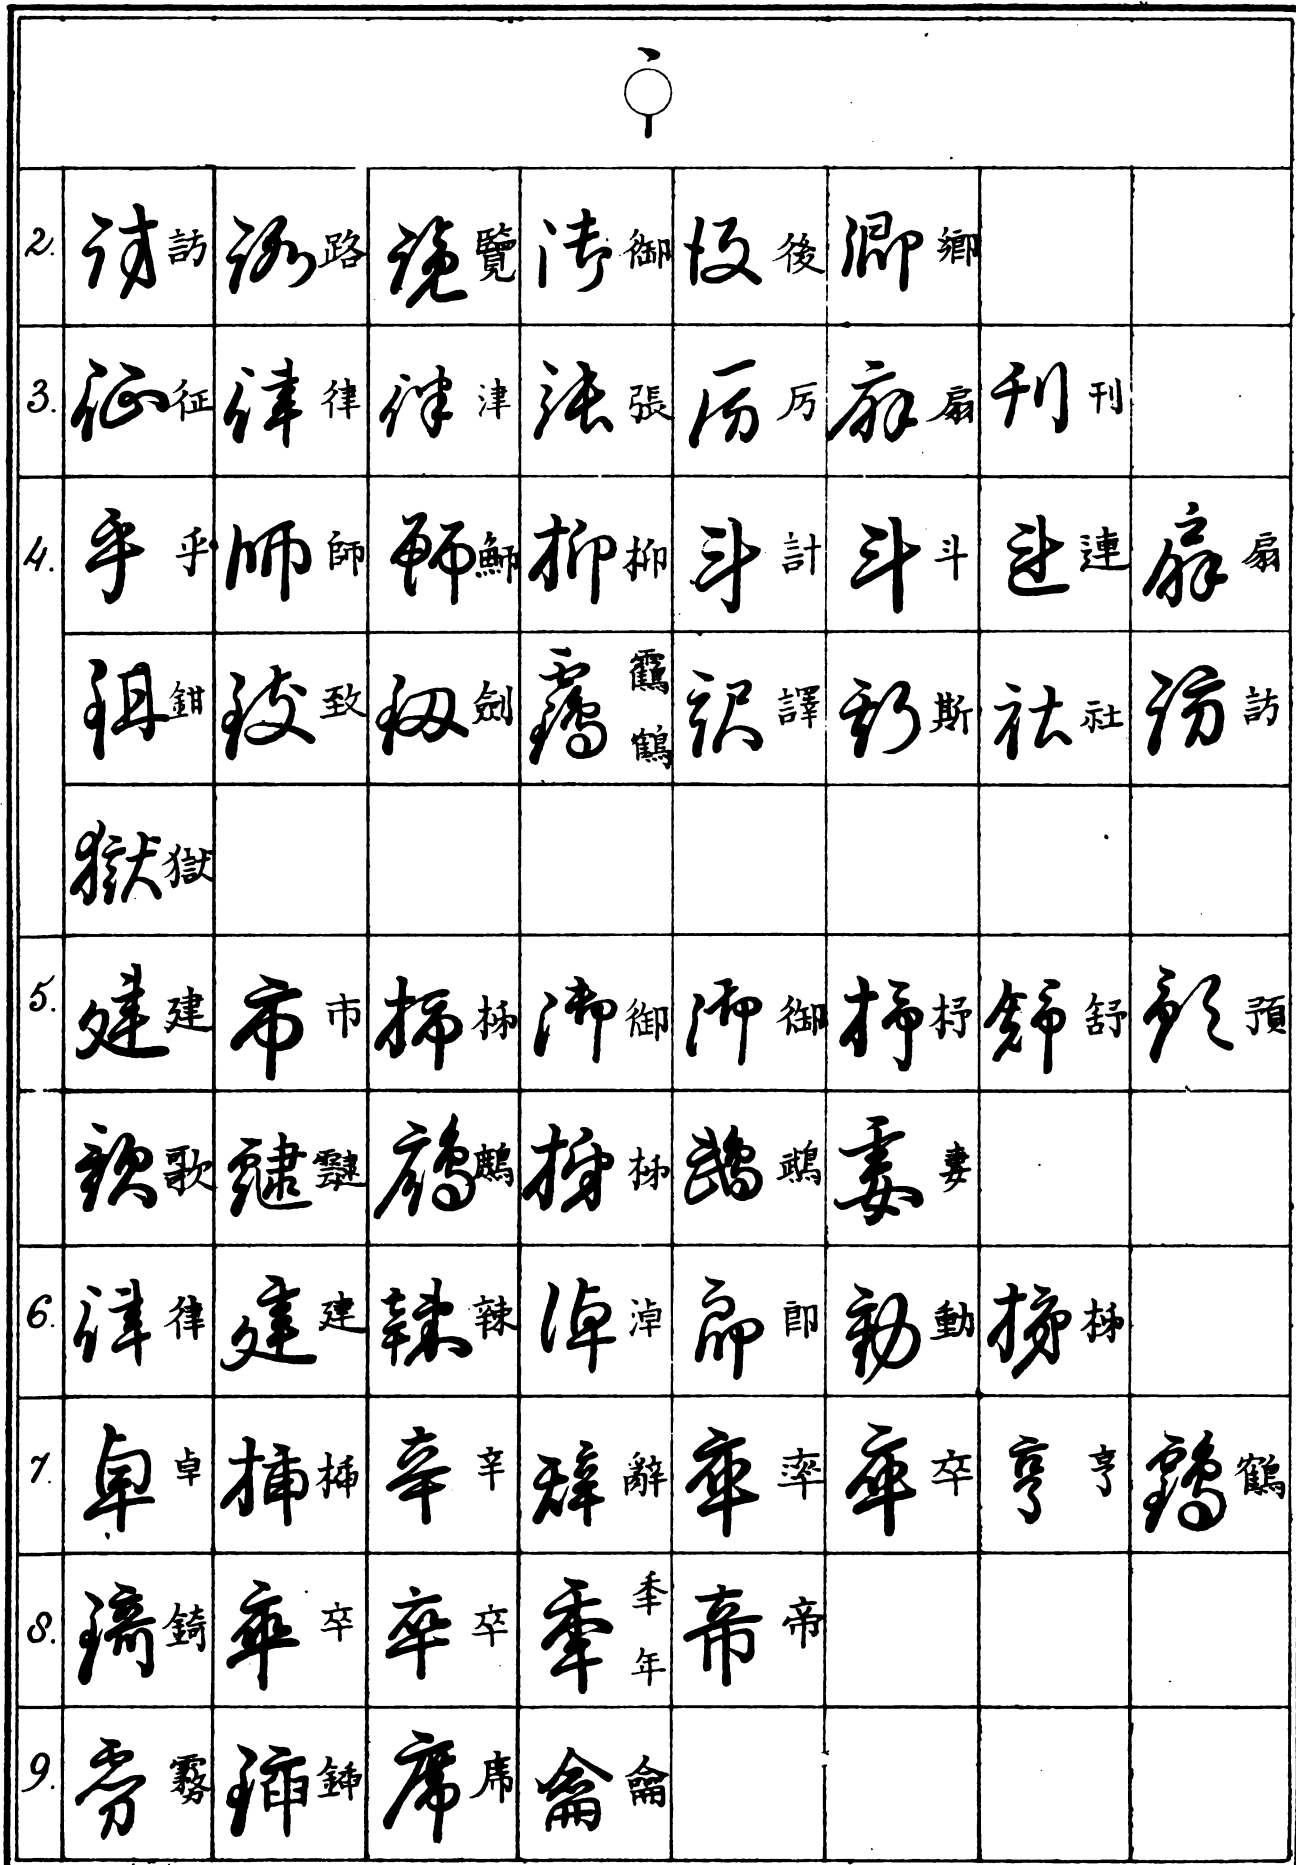 2. 訪 路 覽 御 後 卿
3. 征 律 津 張 厉 扇 刊
4. 乎 師 鰤 柳 計 斗 連 扇
鉗 致 劍 靏 鶴 譯 斯 社 訪
獄
5. 建 市 柹 御 御 杼 舒 預
歌 鷓 柹 鵡 妻
6. 律 建 辣 淖 即 動 柹
7. 卓 挿 辛 辭 率 卒 亨 鶴
8. 錡 卒 卒 秊 年 帝
9. 霧 鍤 席 龠